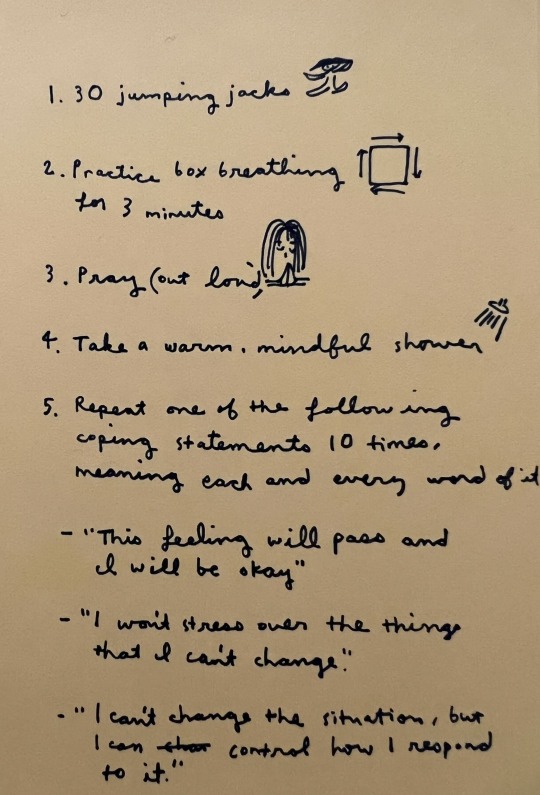 1. 30 jumping jacks
2. Practice box breathing
for 3 minutes
3. Pray (out loud)
4. Take a warm, mindful shower
5. Repeat one of the following
coping statements 10 times,
meaning each and every word of it
- "This feeling will pass and
I will be okay"
- "I won't stress over the things
that I can't change."
- "I can't change the situation, but
I can control how I respond
to it."